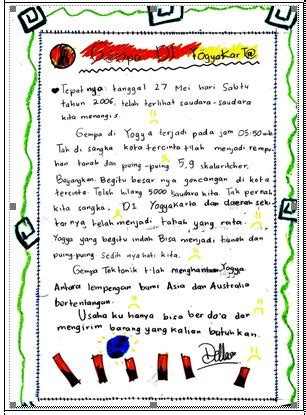 Gempa DI YOgyaKarTa
Tepatnya tanggal 27 Mei hari Sabtu
tahun 2006, telah terlihat saudara-saudara
kita menangis.
Gempa di Yogya terjadi pada jam 05:50 wib
Tak di sangka kota tercinta t'lah menjadi rempu-
han tanah dan puing-puing 5,9 skalaritcher.
Bayangkan. Begitu besar nya goncangan di kota
tercinta. Telah hilang 5000 saudara kita. Tak pernah
kita sangka. DI Yogyakarta dan daerah seki-
tarnya telah menjadi tanah yang rata.
Yogya yang begitu indah Bisa menjadi tanah dan
puing-puing. Sedih nya hati kita.
Gempa Tektonik t'lah menghantam Yogya
Antara lempengan bumi Asia dan Australia
bertentangan.
Usaha ku hanya bisa berdo'a dan
mengirim barang yang kalian butuhkan.